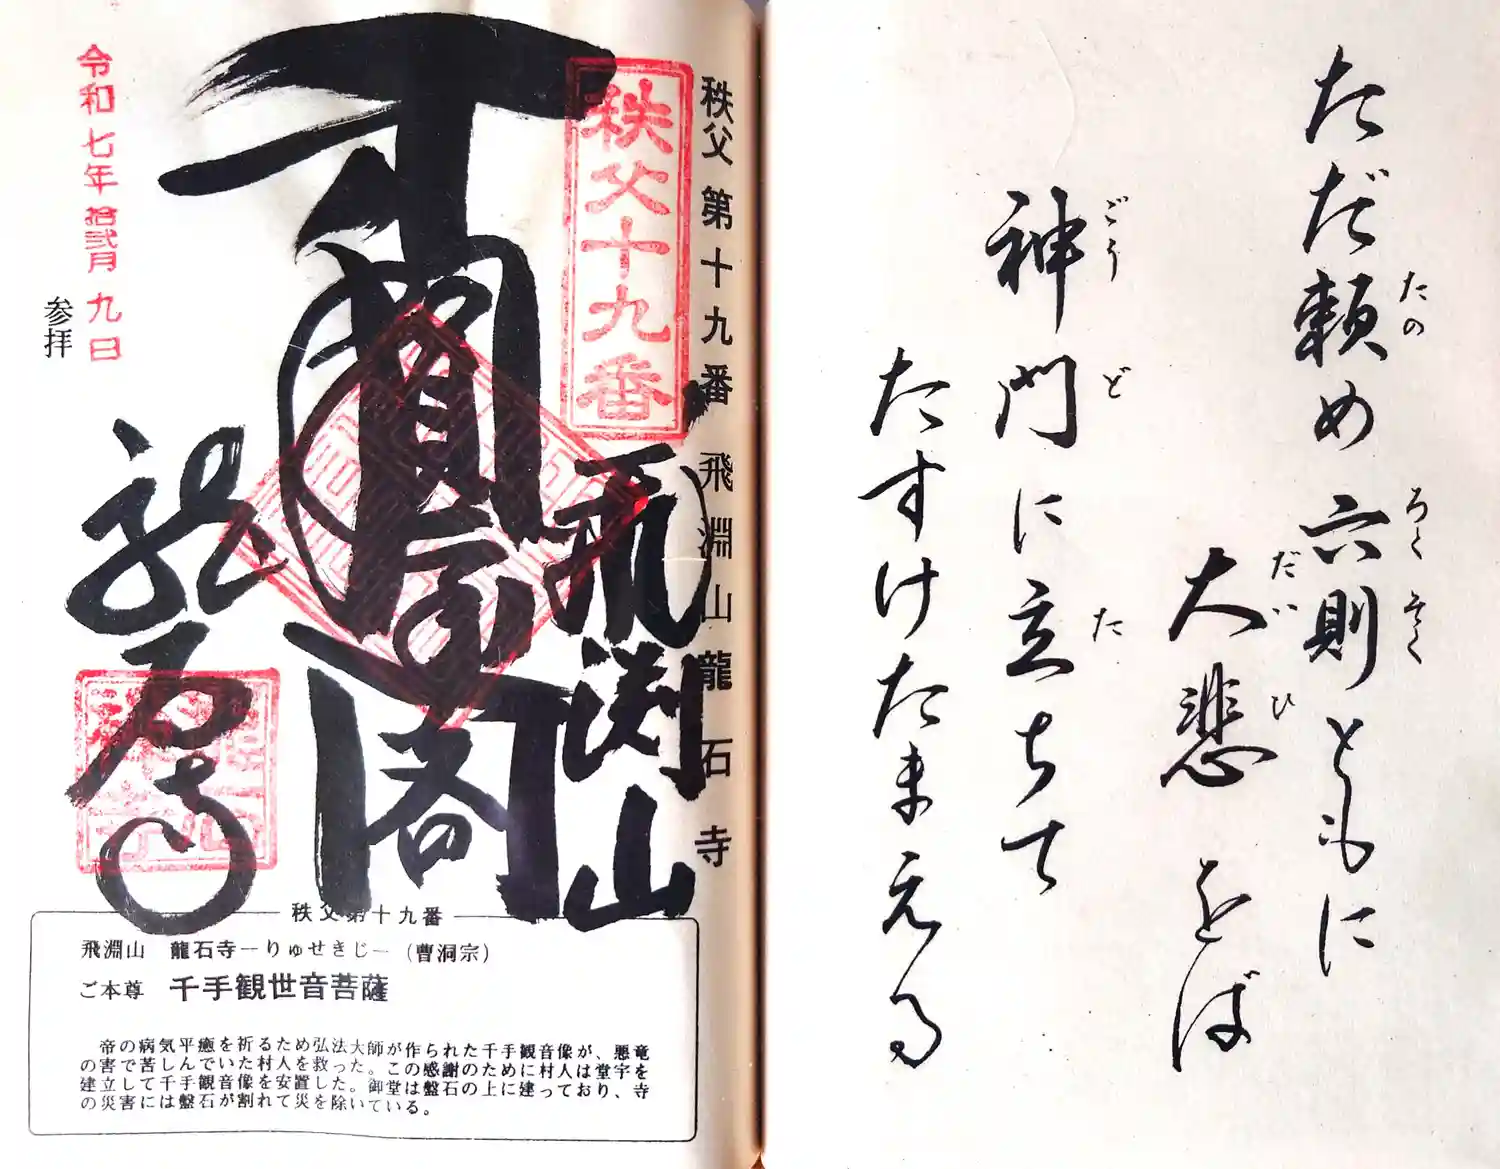 ただ頼め六則ともに
たの
ろくそく
大悲をば
だいひ
神門に立ちて
ごうど
た
たすけたまえる
秩父 第十九番 飛淵山龍石寺
秩父十九番
飛渕山
閣
龍石寺
令和七年拾弐月九日
参拝
秩父第十九番
飛淵山 龍石寺−りゅせきじ−(曹洞宗)
ご本尊 千手観世音菩薩
帝の病気平癒を祈るため弘法大師が作られた千手観音像が、悪竜
の害で苦しんでいた村人を救った。この感謝のために村人は堂宇を
建立して千手観音像を安置した。御堂は盤石の上に建っており、寺
の災害には盤石が割れて災を除いている。